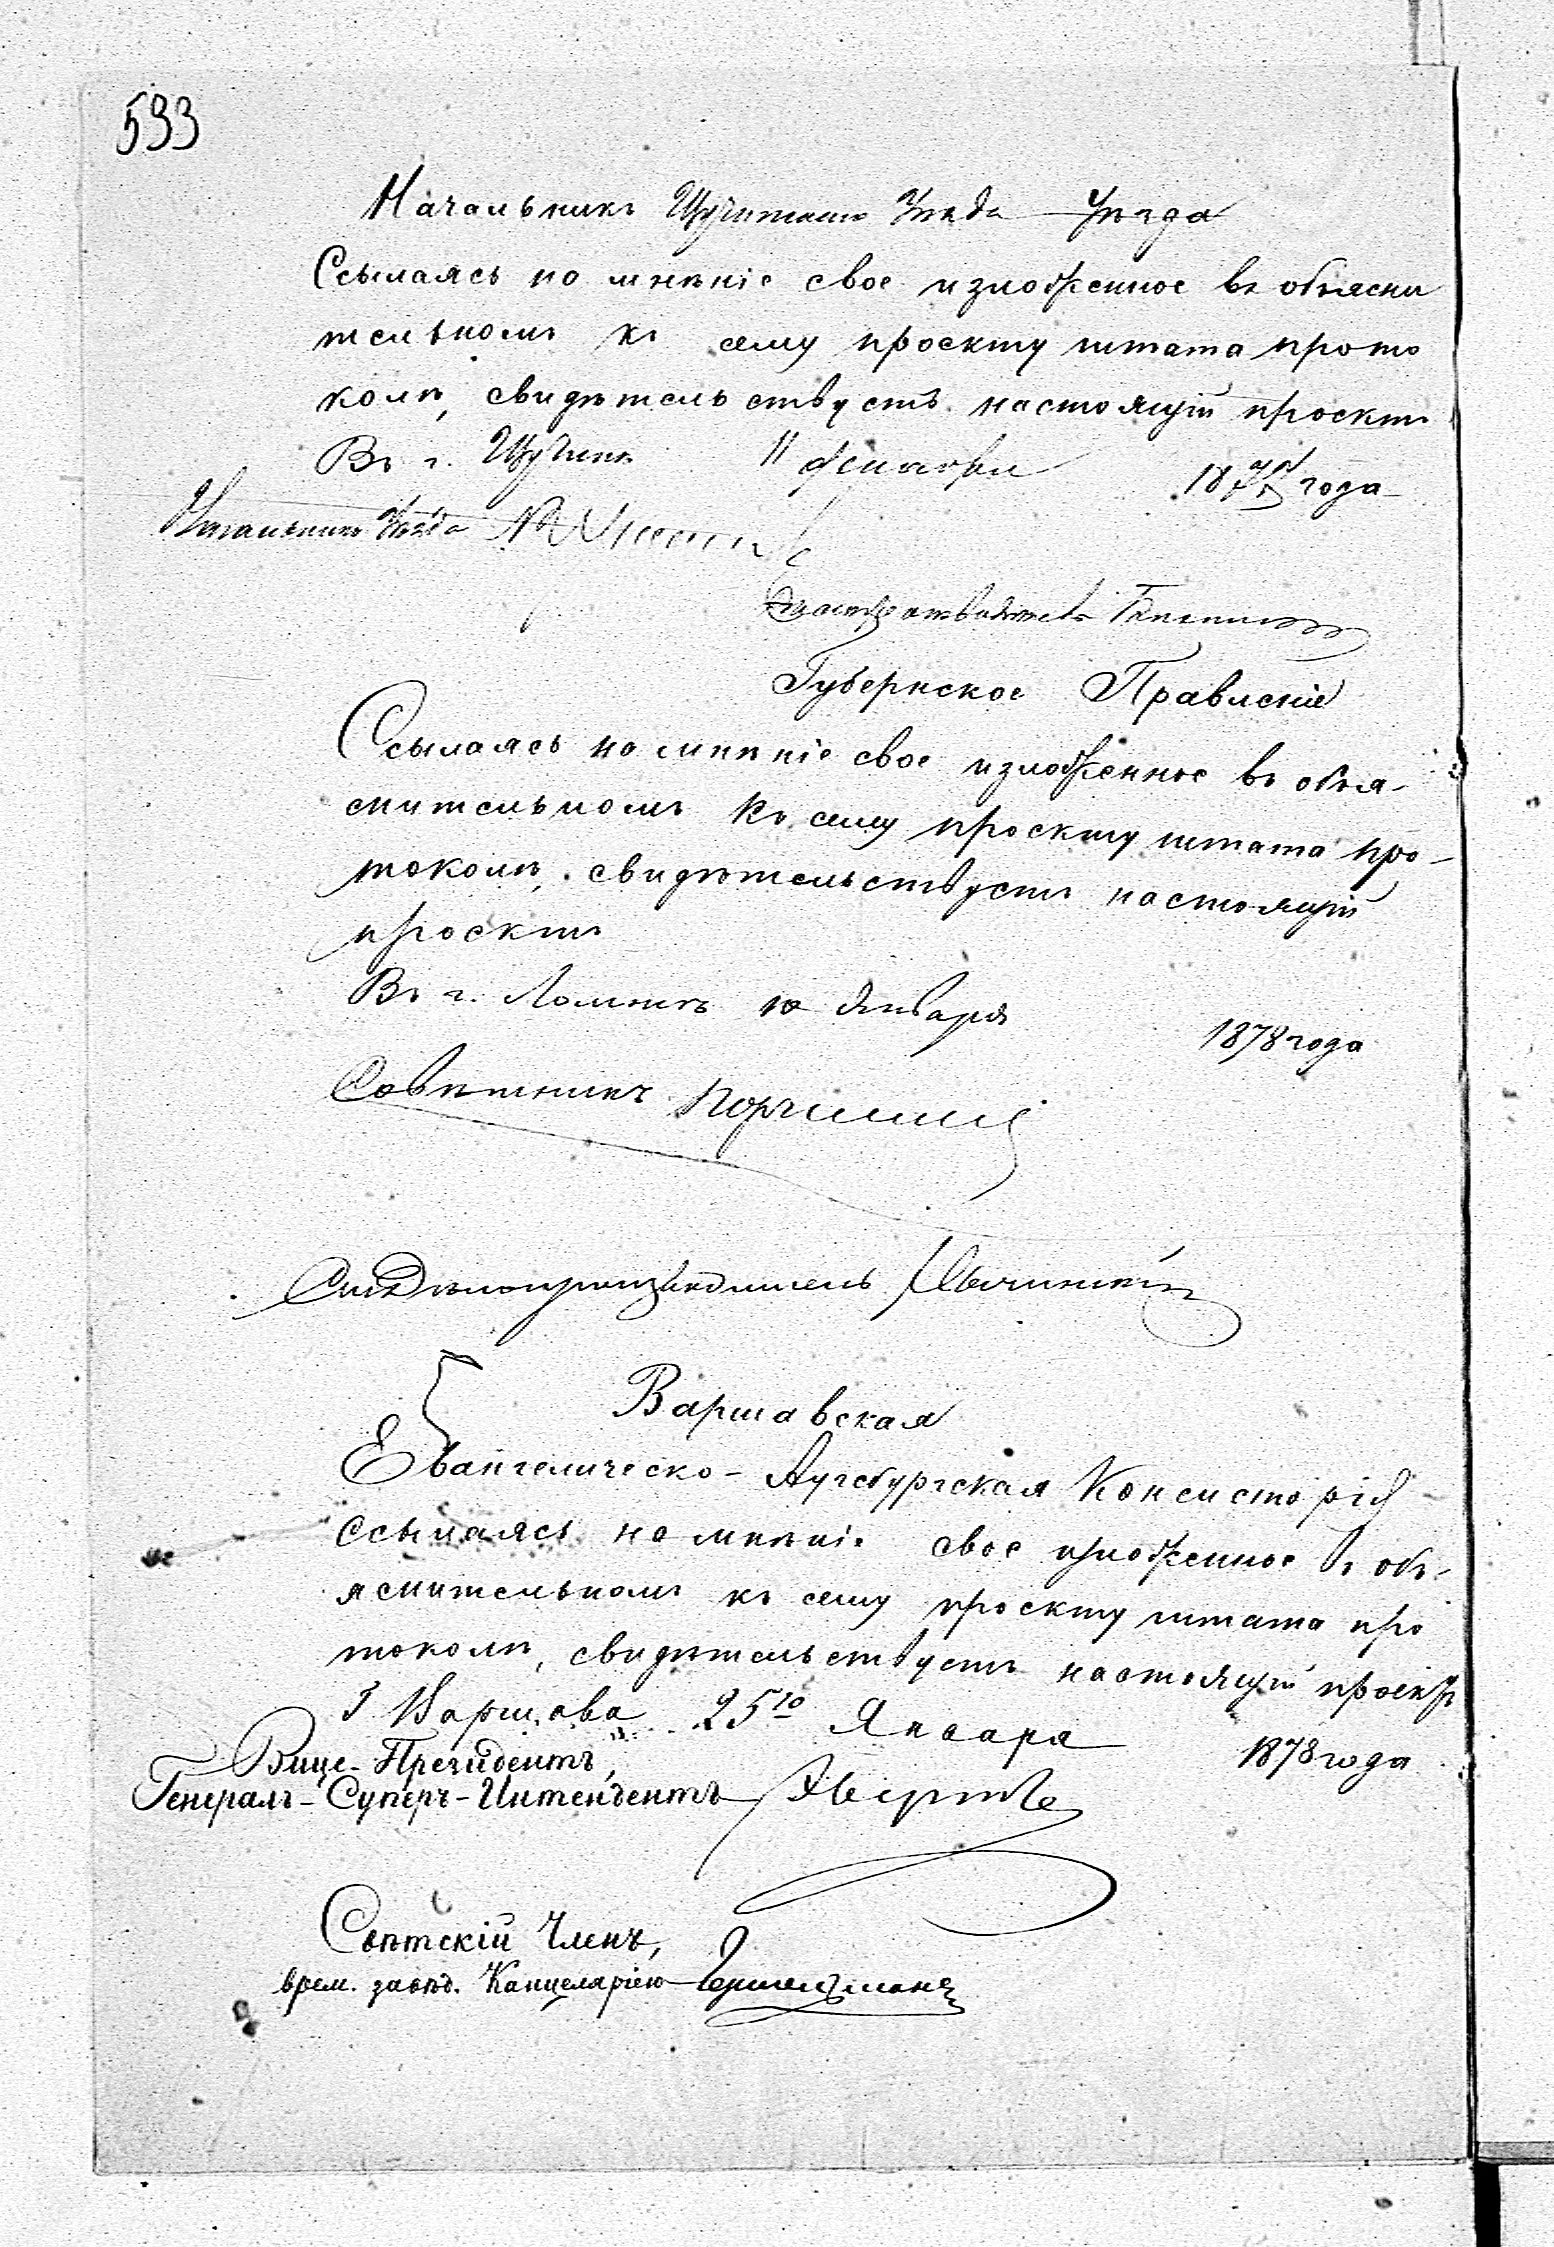 533
Начальникъ Щучинскаго Уѣзда Уѣзда
Ссылаясь на мнѣніе свое изложенное въ объясни
тельномъ къ сему проекту штата прото
колѣ, свидѣтельствуетъ настоящій проектъ
Въ г. Щучинѣ 11 187 года
Начальникъ Уѣзда
Губернское Правленіе
Ссылаясь на мнѣніе свое изложенное въ объя-
снительномъ къ сему проекту штата про-
токолѣ, свидѣтельствуетъ настоящій
проектъ
Въ г. Ломжѣ 10 Января 1878 года
Совѣтникъ
Дѣлопроизводитель
Варшавская
Евангелическо-Аугсбургская Консисторія
ссылаясь на мнѣніе свое изложенное въ объ-
яснительномъ къ сему проекту штата про
токолѣ, свидѣтельствуетъ настоящій проектъ
Г Варшава 25го Января 1878 года
Вице-Президентъ,
Генералъ-Суперъ-Интендентъ
Свѣтскій Членъ,
врем. завѣд. Канцеляріею